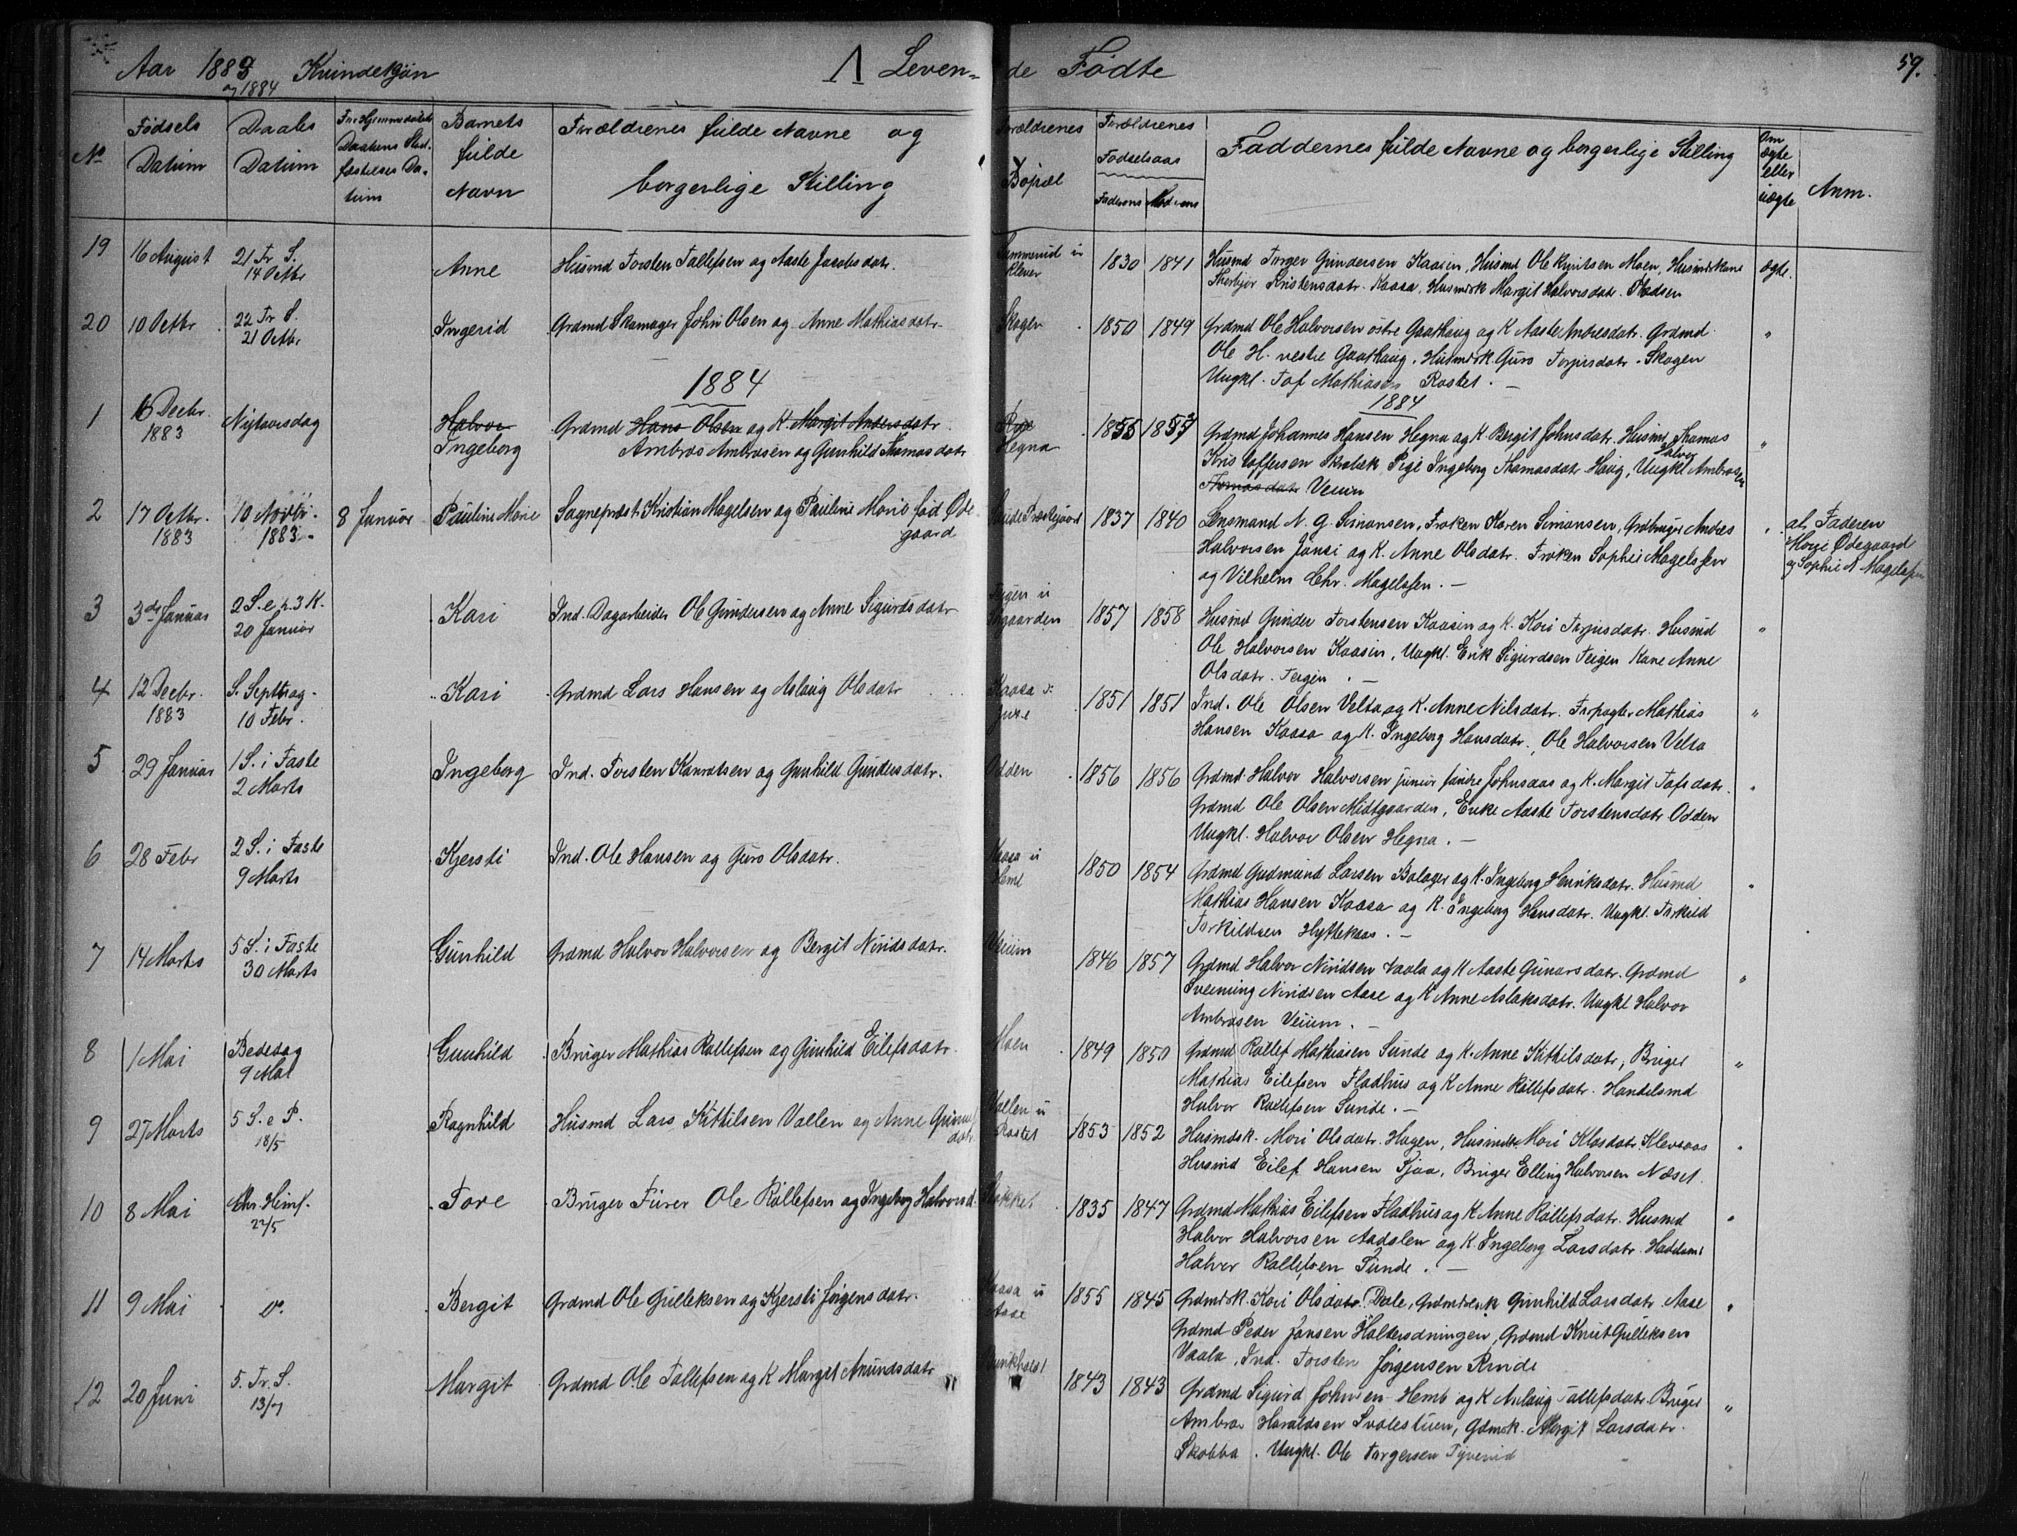 Aar 1883 Kvindekjøn
og 1884
1 Leven-
de Fødte
59.
No
Fødsels
Datum
Daabs
Datum
Barnets
fulde
Navn
Forældrenes fulde Navne og
borgerlige Stilling
Forældrenes
Bopæl
Forældrenes
Fødselsaar
Faderens Moderens
Faddernes fulde Navne og borgerlige Stilling
Om
ægte
eller
uægte
Anm.
19 16 August 21 Tr. S.
14 Octbr
Anne Husmd Torsten Tollefsen og Aaste Jacobsdatr.
1830 1841 Husmd Torger Gundersen Kaasen, Husmd Ole Knutsen Moen, Husmdskone
Kristensdatr. Kaasa, Husmdsk Margit Halvorsdatr.
ægte.
20 10 Octbr 22 Tr S.
21 Octbr
Ingerid Grdmd Skomager John Olsen og Anne Mathiasdatr.
Skogen 1850 1849 Grdmd Ole Halvorsen østre Gaathaug og K Aaste Andresdatr. Grdmd
Ole H. vestre Gaathaug, Husmdsk Guro Torjusdatr. Skogen
Ungkl. Tof Mathiasen Rostet. —
"
1884
1884
1 16 Decbr.
1883
Nytaarsdag
Halvor
Ingeborg
Grdmd Hans Olsen og K. Margit Andersdatr.
Ambros Ambrosen og Gunhild Thomasdatr
Hegna
1855 1857 Grdmd Johannes Hansen Hegna og K. Bergit Johnsdatr. Husmd Thomas
Kristoffersen Skrabek Pige Ingeborg Thomasdatr. Haug, Ungkl Halvor Ambrosen
Thomasdatr Veium
"
2 17 Octbr.
1883
10 Novbr.
1883.
8 Januar Pauline Marie Sognepræst Kristian Magelsen og Pauline Marie fød Øde
gaard
1837 1840 Lensmand N. G. Simonsen, Frøken Karen Simonsen, Grdbruger Andres
Halvorsen Jønsi og K. Anne Olsdatr. Frøken Sophie Magelssen
og Vilhelm Chr. Magelssen. —
at Faderen
Marie Ødegaard
og Sophie N Magelssen
3 3die Januar 2 S. e. h. 3 K.
20 Januar
Kari Ind. Dagarbeider Ole Gundersen og Anne Sigurdsdatr
Teigen u
1857 1858 Husmd Gunder Torstensen Kaasen og K. Kari Torjusdatr. Husmd
Ole Halvorsen Kaasen, Ungkl. Erik Sigurdsen Teigen Kone Anne
Olsdatr. Teigen. —
"
4 12 Decbr.
1883
S. Septuag.
10 Febr.
Kari Grdmd Lars Hansen og Aslaug Olsdatr
1851 1851 Ind. Ole Olsen Velta og K. Anne Nilsdatr. Forpagter Mathias
Hansen Kaasa og K. Ingeborg Hansdatr. Ole Halvorsen Velta
"
5 29 Januar 1 S. i Faste
2 Marts
Ingeborg Ind. Torsten Kanutsen og Gunhild Gundersdatr.
Odden 1856 1856 Grdmd Halvor Halvorsen junior søndre Johnsaas og K. Margit Tofsdatr.
Grdmd Ole Olsen Midtgaarden, Enke Aaste Torstensdatr Odden
Ungkl. Halvor Olsen Hegna. —
"
6 28 Febr 2 S. i Faste
9 Marts
Kjersti Ind. Ole Hansen og Guro Olsdatr.
Kaasa u
Hemb
1850 1854 Grdmd Gudmund Larsen Bolager og K. Ingeborg Henriksdatr. Husmd
Mathias Hansen Kaasa og K. Ingeborg Hansdatr. Ungkl. Torkild
Torkildsen Hyttekaas. —
"
7 14 Marts 5 S. i Faste
30 Marts
Gunhild Grdmd Halvor Halvorsen og Bergit Niridsdatr.
Veium 1846 1857 Grdmd Halvor Niridsen Vaala og K Aaste Gunarsdatr. Grdmd
Sveinung Niridsen Aase og K Anne Aslaksdatr. Ungkl Halvor
Ambrosen Veium. —
"
8 1 Mai Bededag
9 Mai
Gunhild Bruger Mathias Rollefsen og Gunhild Eilefsdatr.
Moen 1849 1850 Grdmd Rollef Mathiasen Sunde og K. Anne Kittilsdatr, Bruger
Mathias Eilefsen Fladhus og K Anne Rollefsdatr. Handelsmd
Halvor Rollefsen Sunde. —
"
9 27 Marts 5 S. e P.
18/5
Ragnhild Husmd Lars Kittilsen Vallen og Anne
datr
Vallen u
Rostet
1853 1852 Husmdsk. Mari Olsdatr. Hagen, Husmdsk Mari Klasdatr. Klevaas
Husmd Eilef Hansen Tjaa, Bruger Elling Halvorsen Næset.
"
10 8 Mai Chr. Himf.
22/5
Tore Bruger Furer Ole Rollefsen og Ingeborg Halvorsd.
1835 1847 Grdmd Mathias Eilefsen Fladhus og K Anne Rollefsdatr. Husmd
Halvor Halvorsen Aadalen og K. Ingeborg Larsdatr.
Halvor Rollefsen Sunde. —
"
11 9 Mai do.
Bergit Grdmd Ole Gulleksen og Kjersti Jørgensdatr.
Kaasa u
Aase
1855 1845 Grdmdsk. Kari Olsdatr. Dale, Grdmdsk Gunhild Larsdatr Aase
Grdmd Peder Jonsen Haltersdningen, Grdmd Knut Gulleksen
Vaala, Ind. Torsten Jørgensen Rinde
"
12 20 Juni 5. Tr. S.
13/7
Margit Grdmd Ole Tollefsen og K Margit Amundsdatr
1843 1843 Grdmd Sigurd Johnsen Hemb og K Aslaug Tollefsdatr. Bruger
Ambros Haraldsen Svalestuen, Gdmsk. Margit Larsdatr.
Skobba. Ungkl. Ole Torgersen
"